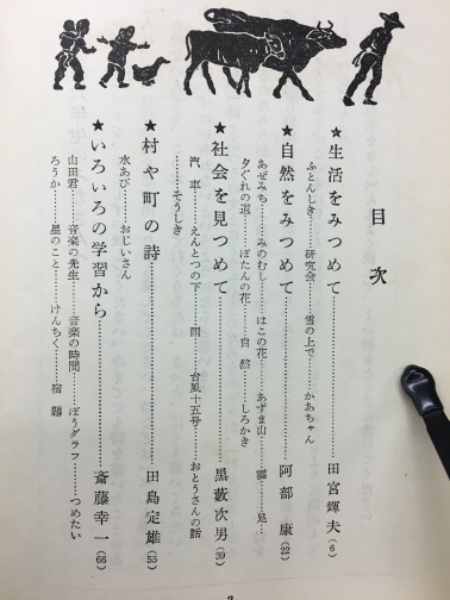 目次
★生活をみつめて……田宮輝夫(6)
ふとんしき……研究会……雪の上で……かあちゃん
★自然をみつめて……阿部 康(22)
あぜみち……みのむし……はこの花……あずま山……雲……足……
夕ぐれの道……ぼたんの花……自 然……しろかき
★社会を見つめて……黒藪次男(39)
汽 車……えんとつの下……雨……台風十五号……おとうさんの話
……そうしき
★村や町の詩……田島定雄(55)
水あび……おじいさん
★いろいろの学習から……斎藤幸一(66)
山田君……音楽の先生……音楽の時間……ぼうグラフ……つめたい
ろうか……星のこと……けんちく……宿 題